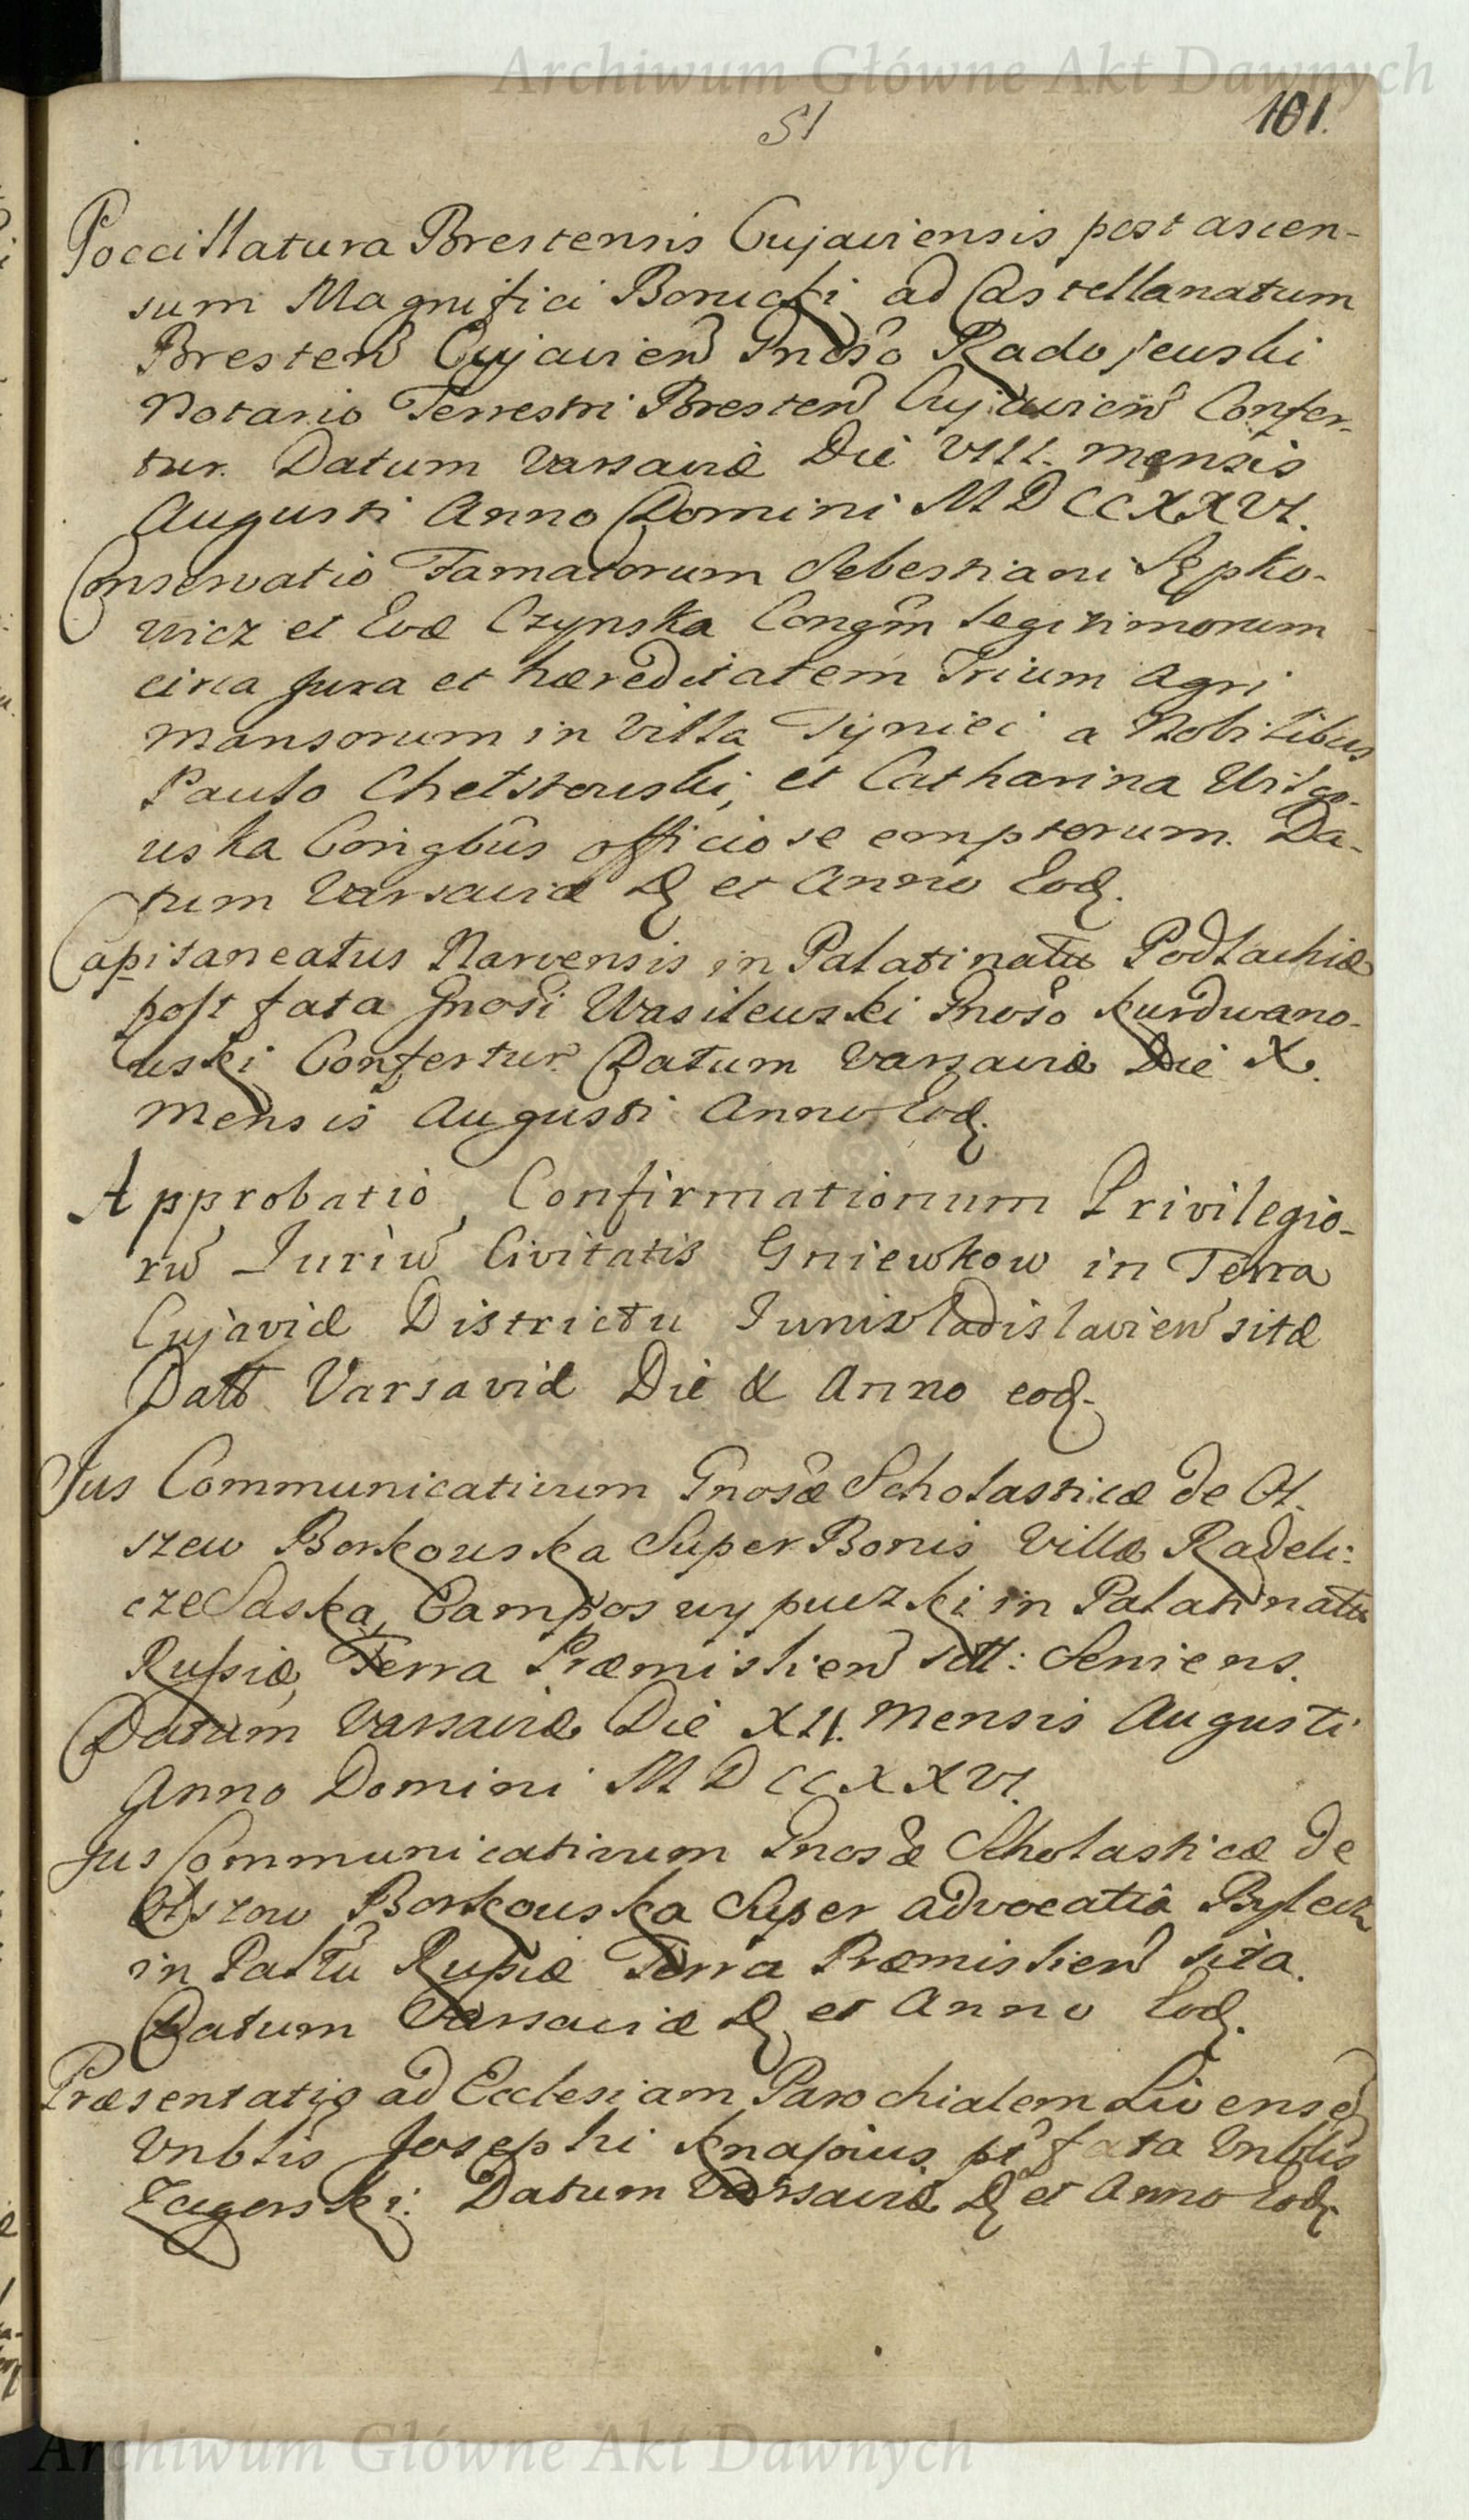 Archiwum Główne Akt Dawnych
51
101.
Poccillatura Brestensis Cujaviensis post ascen-
sum Magnifici Bonicki ad Castellanatum
Bresten Cujavien Gnoso Radojewski
Notario Terrestri Bresten Cujavien Confer-
tur. Datum Varsaviæ Die VIII. mensis
Augusti Anno Domini MDCCXXVI.
Conservatio Famatorum Sebestiani Sępko-
wicz et Evæ Czynska Congm legitimorum
circa Jura et hæreditatem Trium Agri
mansorum in Villa Tyniec a Nobilibus
Paulo Chelstowski, et Catharina Wilgo-
wska Congbus officiose emptorum. Da-
tum Varsaviæ D et Anno Eod.
Capitaneatus Narvensis in Palatinatu Podlachiæ
post fata Gnosi Wasilewski Gnoso Kurdwano-
wski Confertur Datum Varsaviæ Die X.
Mensis Augusti Anno Eod.
Approbatio, Confirmationum Privilegio-
rū Juriū Civitatis Gniewkow in Terra
Cujaviæ Districtu Junivladislavien sitæ
Datt Varsaviæ Die & Anno eod.
Jus Communicativum Gnosæ Scholasticæ de Ol-
szew Borkowska Super Bonis Villæ Radeli-
cze Saska, Campos wypuczki in Palatinatu
Russiæ, Terra Præmislien sitt: Serviens.
Datum Varsaviæ Die XII. Mensis Augusti
Anno Domini MDCCXXVI.
Jus Communicativum Gnosæ Scholasticæ de
Olszow Borkowska Super advocatia
in Palltu Russiæ Terra Præmislien sita.
Datum Varsaviæ D et Anno Eod.
Præsentatio ad Ecclesiam Parochialem Livense
Vnblis Josephi Knapius pt fata Vnblis
Zagorski. Datum Varsaviæ D et Anno Eod.
Archiwum Główne Akt Dawnych